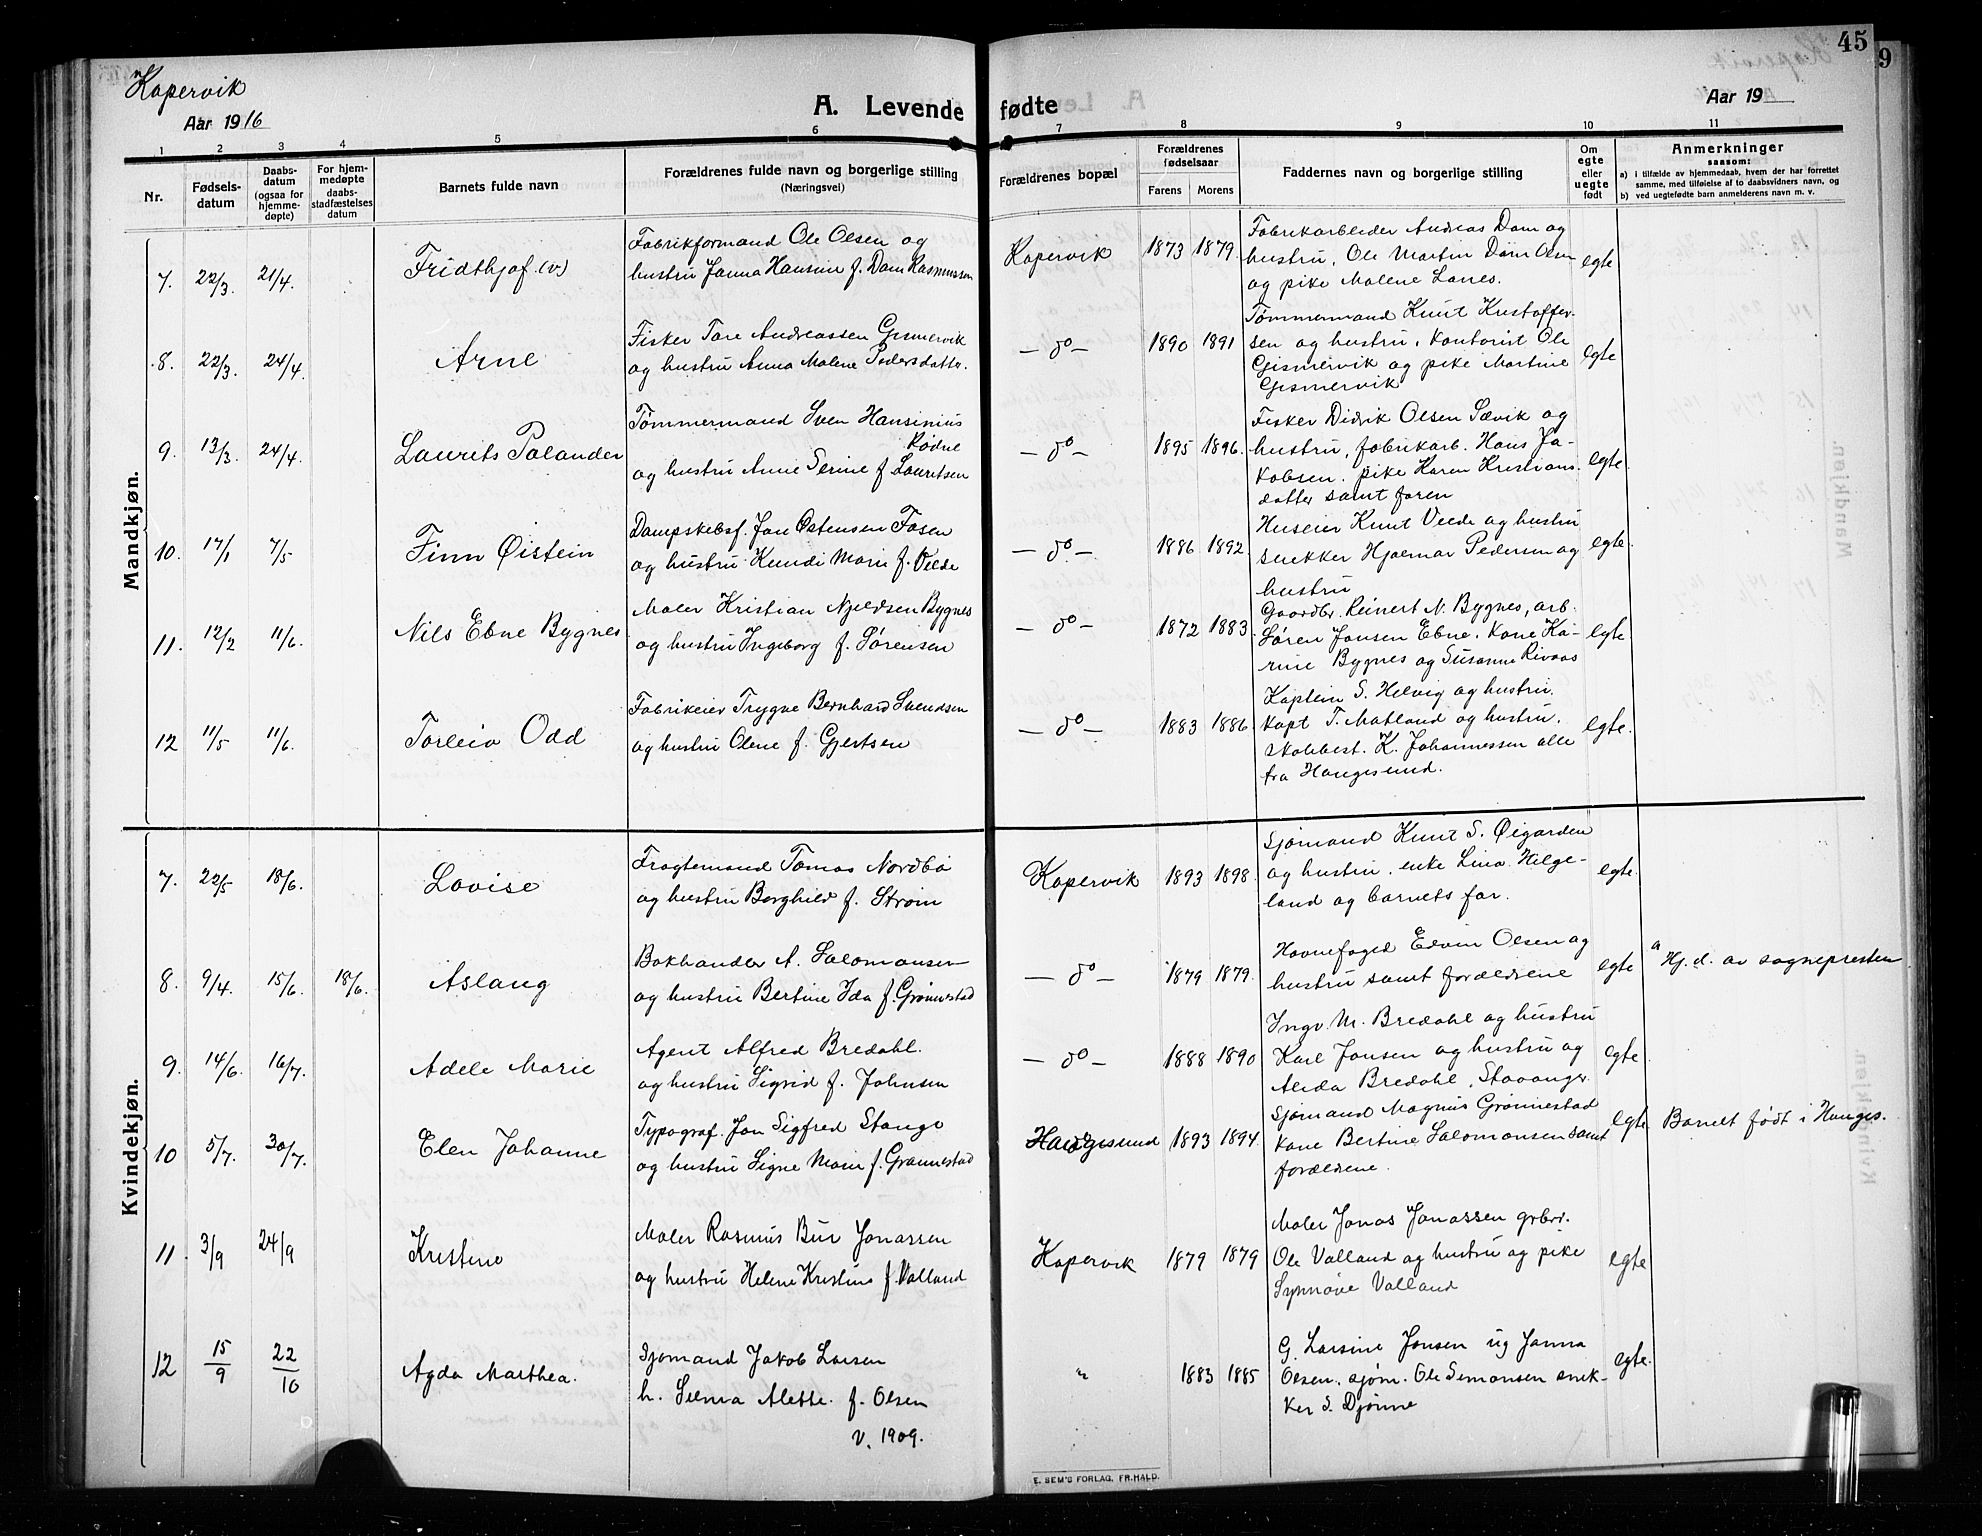 Kopervik
Aar 1916
A. Levende fødte
Aar 19
45
9
1 2 3 4 5 6 7 8 9 10 11
Nr.
Fødsels-
datum
Daabs-
datum
(ogsaa for
hjemme-
døpte)
For hjem-
medøpte
daabs-
stadfæstelses
datum
Barnets fulde navn
Forældrenes fulde navn og borgerlige stilling
(Næringsvei)
Forældrenes bopæl
Forældrenes
fødselsaar
Farens Morens
Faddernes navn og borgerlige stilling
Om
egte
eller
uegte
født
Anmerkninger
saasom:
a) i tilfælde av hjemmedaab, hvem der har forrettet
samme, med tilføielse af to daabsvidners navn, og
b) ved uegtefødte barn anmelderens navn m. v.
Mandkjøn.
7. 22/3. 21/4. Fridthjof (v)
Fabrikformand Ole Olsen og
hustru Janna Hansine f. Dam Rasmussen
Kopervik 1873 1879.
Fabrikarbeider Andreas Dam og
hustru, Ole Martin Dam Olsen
og pike Malene Lanes.
egte
8. 22/3. 24/4. Arne
Fisker Tore Andreassen Gismervik
og hustru Anna Malene Pedersdatter.
— do — 1890 1891
Tømmermand Knut Kristoffer-
sen og hustru, Kontorist Ole
Gismervik og pike Martine
Gismervik
egte
9. 13/3. 24/4. Laurits Palander
Tømmermand Sven Hansinius
Rødne
og hustru Anne Serine f Lauritsen
— do — 1895 1896.
Fisker Didrik Olsen Sævik og
hustru, fabrikarb. Hans Ja-
kobsen. pike Karen Kristians-
datter samt faren
egte.
10. 17/1 7/5 Finn Øistein
Dampskibsf. Jon Østensen Fosen
og hustru Kundi Marie f. Velde
— do — 1886 1892
Huseier Knut Velde og hustru
snekker Hjalmar Pedersen og
hustru
egte.
11. 12/2 11/6. Nils Ebne Bygnes
Maler Kristian Njeldsen Bygnes
og hustru Ingeborg f. Sørensen
— do — 1872 1883
Gaardbr. Reinert N. Bygnes, arb.
Søren Jansen Ebne. Kone Ka-
rine Bygnes og Susanne Rivaas
egte.
12 11/5 11/6. Torleiv Odd
Fabrikeier Trygve Bernhard Svendsen
og hustru Olene f. Gjertsen
— do — 1883 1886
Kaptein S. Helvig og hustru.
Kapt T. Matland og hustru.
skobest. K. Johannessen alle
fra Haugesund.
egte.
Kvindekjøn.
7. 22/5 18/6. Lovise
Fragtemand Tomas Nordbø
og hustru Borghild f. Strøm
Kopervik 1893 1898.
Sjømand Knut S. Øigarden
og hustru, enke Lina Helge-
land og barnets far.
egte.
8. 9/4. 15/6. 18/6. Aslaug
Bokhandler A. Salomonsen
og hustru Bertine Ida f. Grønnestad
— do — 1879 1879.
Havnefoged Edvin Olsen og
hustru samt forældrene
egte
a Hj. d. av sognepresten
9. 14/6. 16/7. Adele Marie
Agent Alfred Bredahl.
og hustru Sigrid f. Johnsen
— do — 1888 1890
Ingv. M. Bredahl og hustru
Karl Jonsen og hustru og
Alida Bredahl, Stavanger.
egte
10 5/7. 30/7. Elen Johanne
Typograf. Jon Sigfred Stange
og hustru Signe Marie f. Grønnestad
Haugesund 1893 1894.
Sjømand Magnus Grønnestad
Kone Bertine Salomonsen samt
forældrene.
egte
Barnet født i Hauges.
11. 3/9 24/9 Kristine
Maler Rasmus Bür Jonassen
og hustru Helene Kristine f. Valland
Kopervik 1879 1879
Maler Jonas Jonassen grbr.
Ole Valland og hustru og pike
Synnøve Valland
egte
12 15/9 22/10 Agda Marthea.
Sjømand Jakob Larsen
h. Selma Alette. f. Olsen
v. 1909.
" 1883 1885
G. Larsine Jonsen og Janna
Olsen. sjøm. Ole Simonsen snek-
ker S. Djønne
egte.
E. SEM'S FORLAG, FR.HALD.